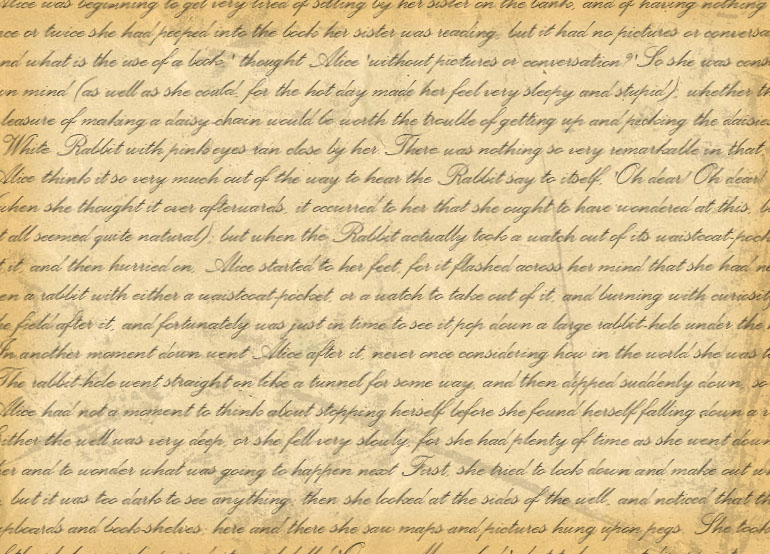 Alice was beginning to get very tired of sitting by her sister on the bank, and of having nothing
nce or twice she had peeped into the book her sister was reading, but it had no pictures or conversa
nd what is the use of a book,' thought Alice 'without pictures or conversation?' So she was cons
wn mind (as well as she could, for the hot day made her feel very sleepy and stupid), whether th
leasure of making a daisy-chain would be worth the trouble of getting up and picking the daisies
White Rabbit with pink eyes ran close by her. There was nothing so very remarkable in that
Alice think it so very much out of the way to hear the Rabbit say to itself, 'Oh dear! Oh dear!
when she thought it over afterwards, it occurred to her that she ought to have wondered at this, b
t all seemed quite natural); but when the Rabbit actually took a watch out of its waistcoat-pock
t it, and then hurried on, Alice started to her feet, for it flashed across her mind that she had n
en a rabbit with either a waistcoat-pocket, or a watch to take out of it, and burning with curiosit
he field after it, and fortunately was just in time to see it pop down a large rabbit-hole under the
In another moment down went Alice after it, never once considering how in the world she was t
The rabbit-hole went straight on like a tunnel for some way, and then dipped suddenly down, so
Alice had not a moment to think about stopping herself before she found herself falling down a v
Either the well was very deep, or she fell very slowly, for she had plenty of time as she went down
her and to wonder what was going to happen next. First, she tried to look down and make out w
, but it was too dark to see anything; then she looked at the sides of the well, and noticed that th
upboards and book-shelves; here and there she saw maps and pictures hung upon pegs. She took